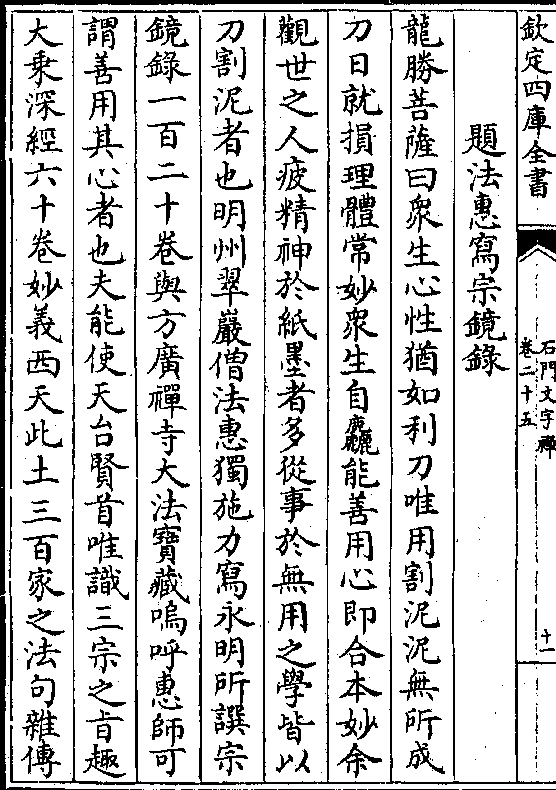 欽定四庫全書
石門文字禪
卷二十五
十一
題法惠寫宗鏡錄
龍勝菩薩曰衆生心性猶如利刀唯用割泥泥無所成
刀日就損理體常妙衆生自麤能善用心即合本妙余
觀世之人疲精神於紙墨者多從事於無用之學皆以
刀割泥者也明州翠巖僧法惠獨施力寫永明所譔宗
鏡錄一百二十卷與方廣禪寺大法寶藏嗚呼惠師可
謂善用其心者也夫能使天台賢首唯識三宗之旨趣
大乗深經六十卷妙義西天此土三百家之法句雜傳